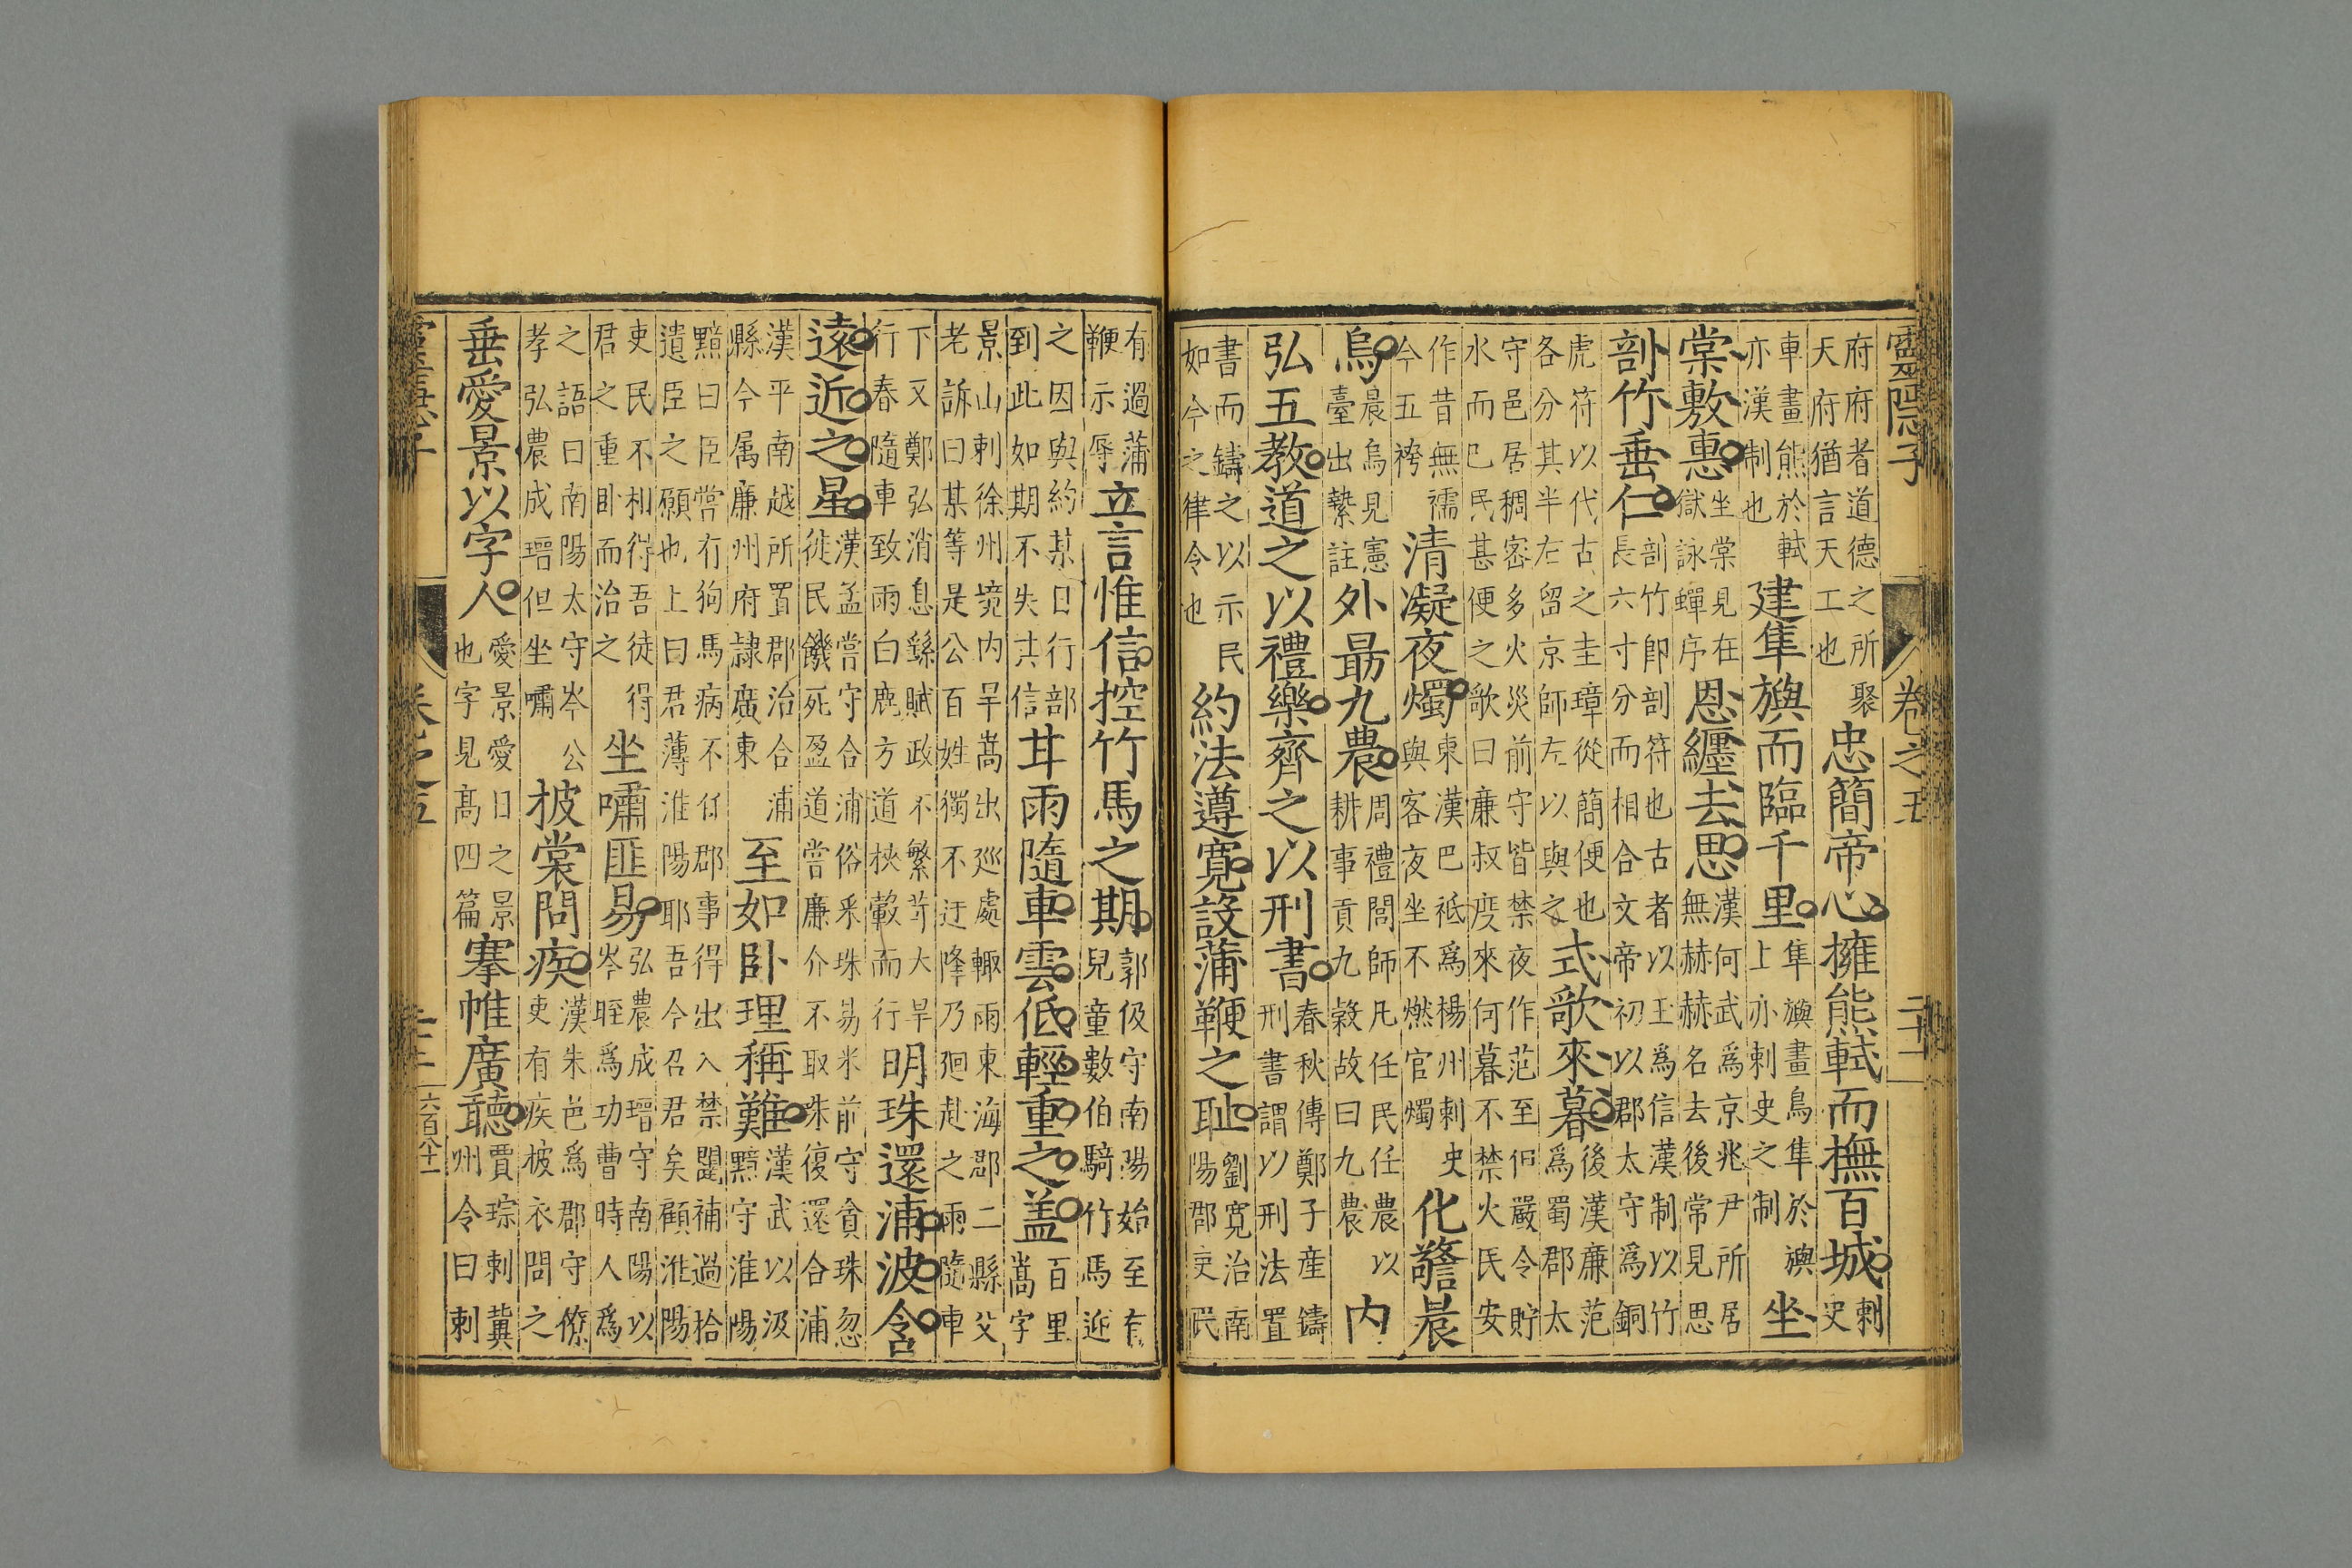 靈隱子 卷之五 二十一
府府者道德之所聚
天府猶言天工也
忠簡帝心擁熊軾而撫百城
刺
史
車畫熊於軾
亦漢制也
建隼旟而臨千里
隼旟畫鳥隼於旟
上亦刺史之制
坐
棠敷惠
坐棠見在
獄詠蟬序
恩纏去思
漢何武爲京兆尹所居
無赫赫名去後常見思
剖竹垂仁
剖竹卽剖符也古者以王爲信漢制以竹
長六寸分而相合文帝初以郡太守爲銅
虎符以代古之圭璋從簡便也
各分其半右留京師左以與之
式歌來暮
後漢廉范
爲蜀郡太
守邑居稠密多火災前守皆禁夜作范至但嚴令貯
水而已民甚便之歌曰廉叔度來何暮不禁火民安
作昔無襦
今五袴
清凝夜燭
東漢巴祗爲楊州刺史
與客夜坐不燃官燭
化警晨
烏
晨烏見憲
臺出縶註
外最九農
周禮閭師凡任民任農以
耕事貢九穀故曰九農
内
弘五教道之以禮樂齊之以刑書
春秋傳鄭子產鑄
刑書謂以刑法置
書而鑄之以示民
如今之律令也
約法遵寬設蒲鞭之耻
劉寬治南
陽郡吏民
有過蒲
鞭示辱
立言惟信控竹馬之期
郭伋守南陽始至有
兒童數伯騎竹馬迎
之因與約某日行部
到此如期不失其信
甘雨隨車雲低輕重之蓋
百里
嵩字
景山刺徐州境内旱嵩出巡處輙雨東海郡二縣父
老訴曰某等是公百姓獨不迂降乃廻赴之雨隨車
下又鄭弘消息繇賦政不繁苛大旱
行春隨車致雨白鹿方道挾轂而行
明珠還浦波含
遠近之星
漢孟嘗守合浦俗釆珠易米前守貪珠忽
徙民饑死盈道嘗廉介不取珠復還合浦
漢平南越所置郡治合浦
縣今属廉州府隷廣東
至如卧理稱難
漢武以汲
黯守淮陽
黯曰臣嘗有狗馬病不任郡事得出入禁闥補過拾
遣臣之願也上曰君薄淮陽耶吾今召君矣顧淮陽
吏民不相得吾徒得
君之重卧而治之
坐嘯匪易
弘農成瑨守南陽以
岑晊爲功曹時人爲
之語曰南陽太守岑公
孝弘農成瑨但坐嘯
披裳問疾
漢朱邑爲郡守僚
吏有疾被衣問之
垂愛景以字人
愛景愛日之景
也字見高四篇
褰帷廣聽
賈琮刺冀
州令曰刺